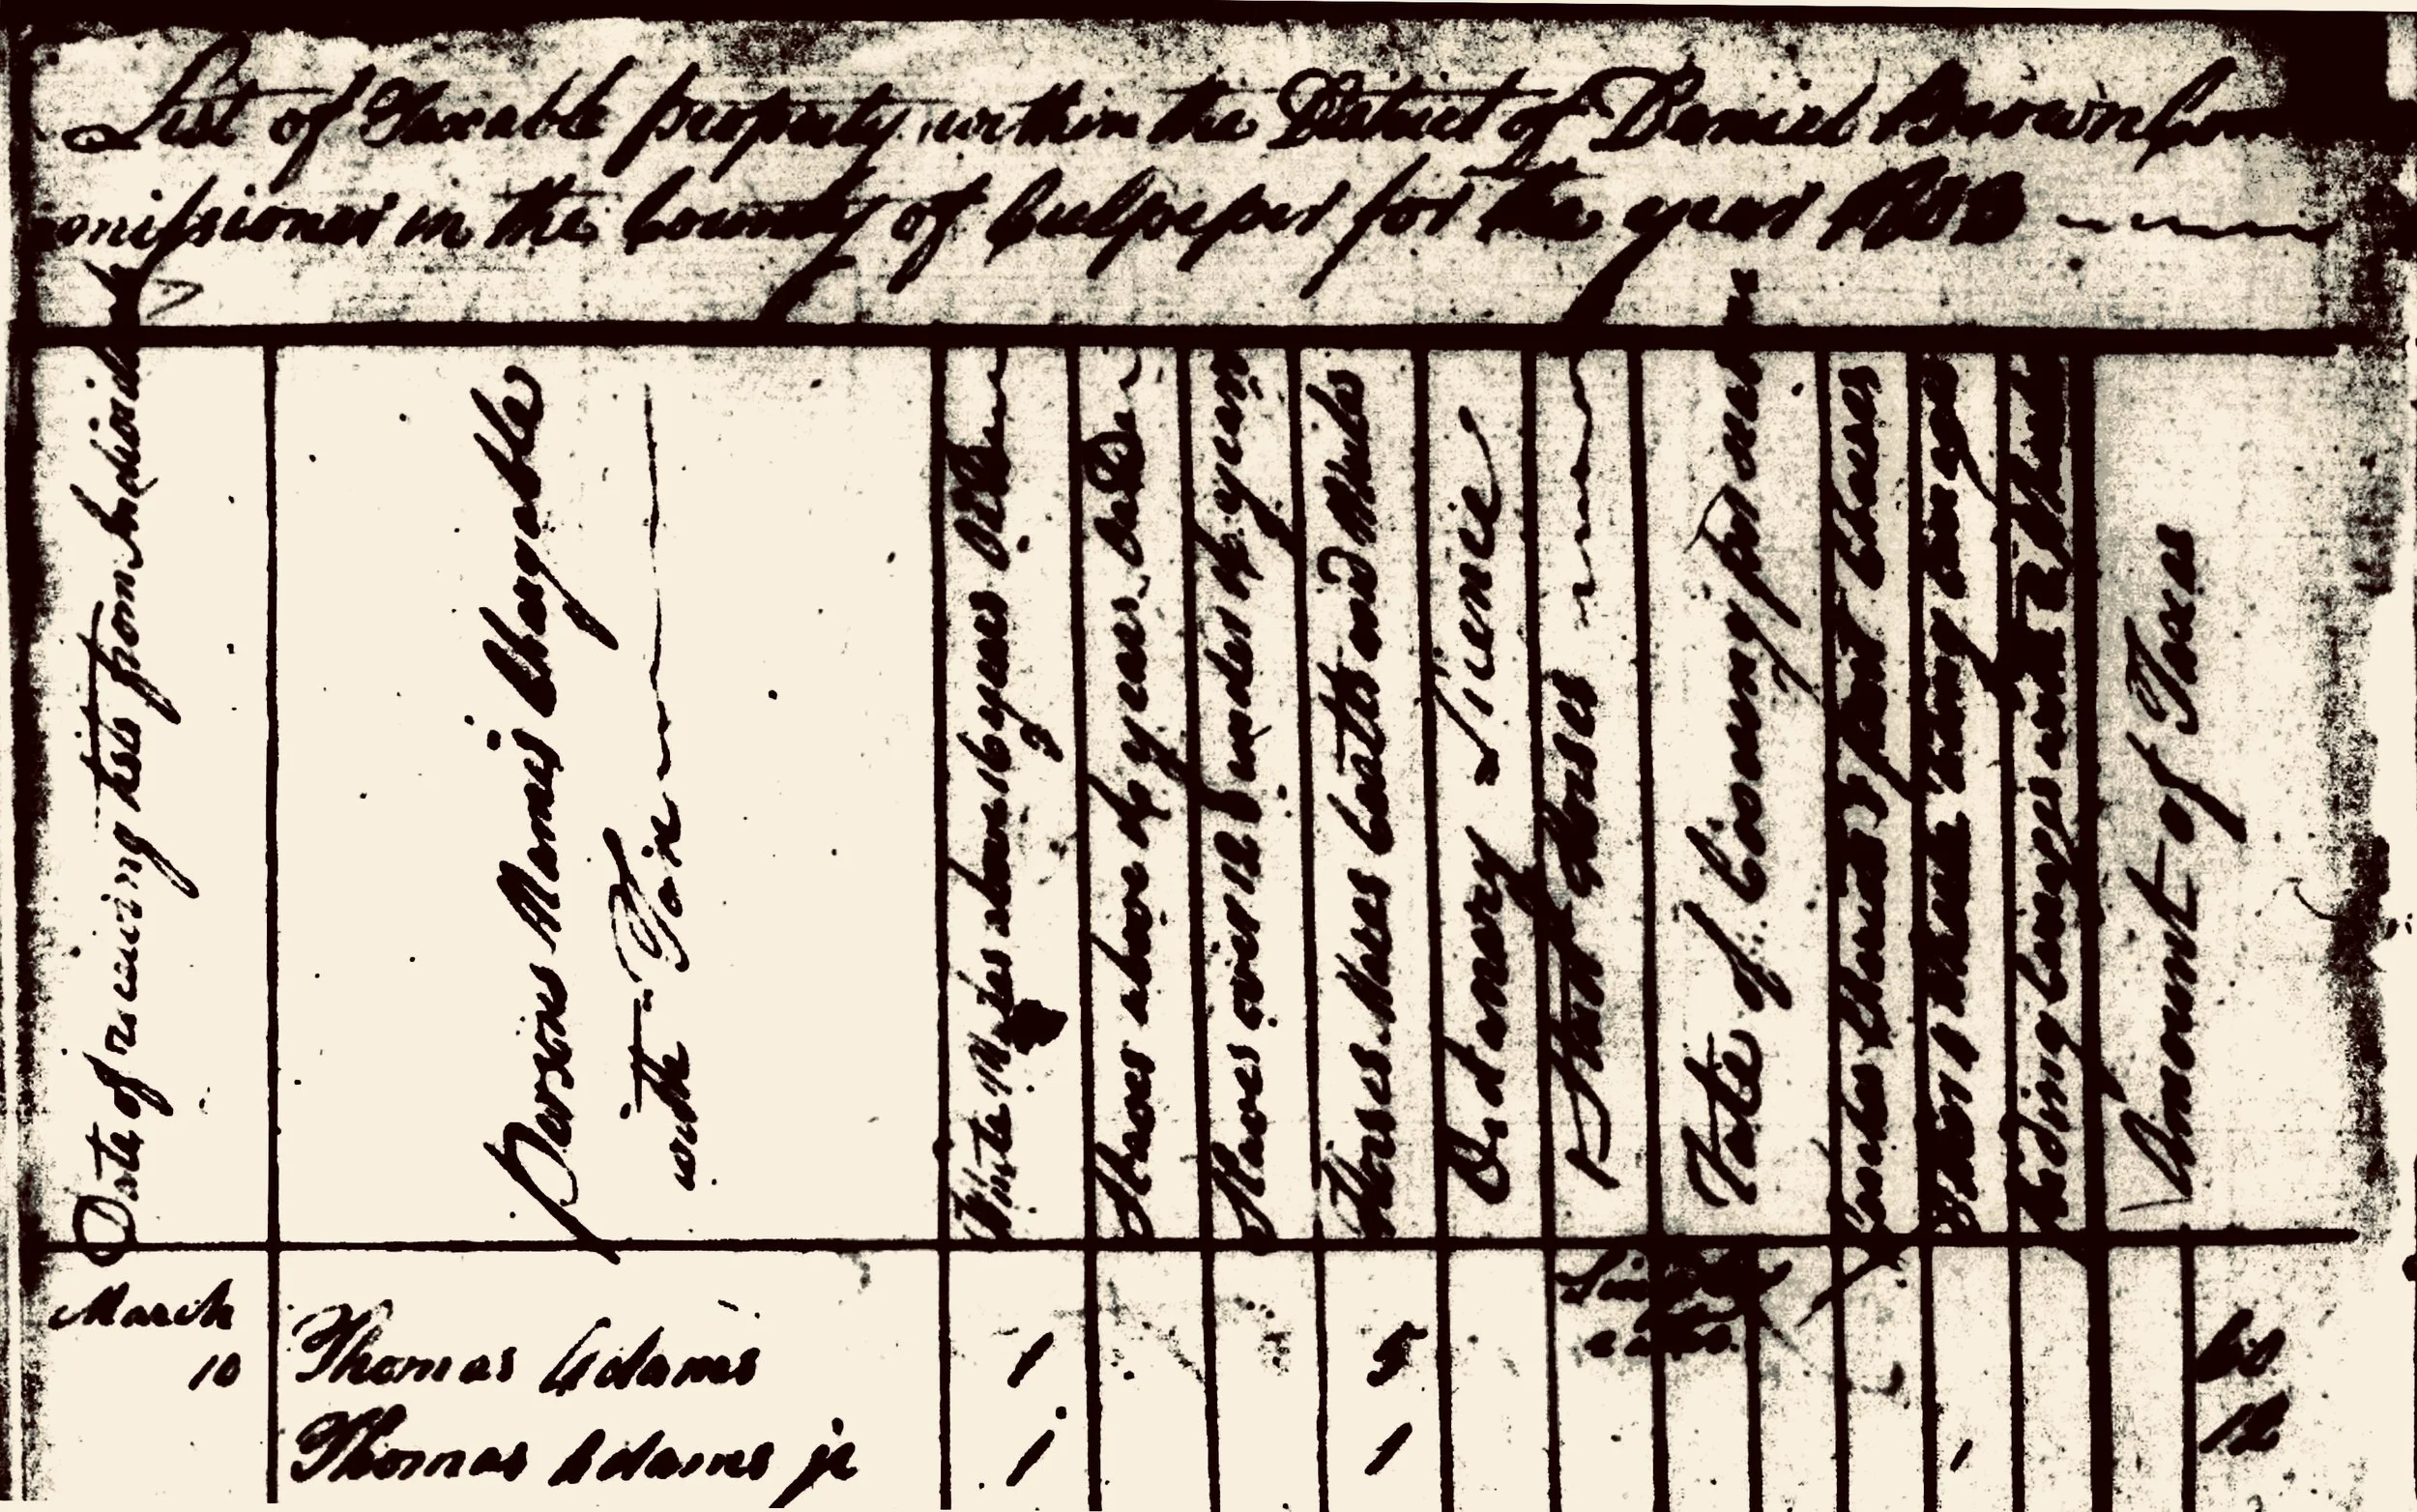 List of Taxable property within the District of Daniel Brown Com
missioner in the County of Culpeper for the year
Date of receiving lists from Individuals
Persons Names Chargeable
with Tax
White Males above 16 years
Slaves above 16 years
Slaves over 12 & under 16 years
Horses Mares Coalts and Mules
Ordanary Licence
Stud Horses
Rate of Covering
Amount of Taxes
March
10 Thomas Adams 1 5 60
Thomas Adams jr 1 1 1 12